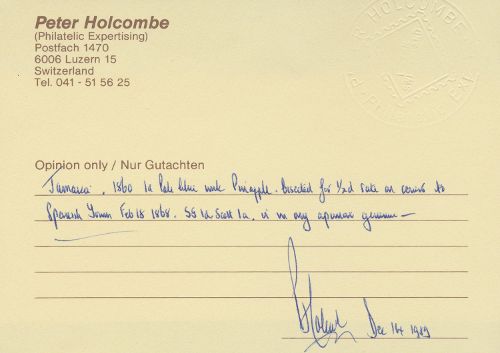 Peter Holcombe
(Philatelic Expertising)
Postfach 1470
6006 Luzern 15
Switzerland
Tel. 041 - 51 56 25
HOLCOMBE
Opinion only / Nur Gutachten
Jamaica. 1860 1d Pale blue wmk Pineapple. Bisected for ½d rate on cover to
Spanish Town Feb 18 1868. SG 1a Scott 1a. is in my opinion genuine —
Dec 14 1989